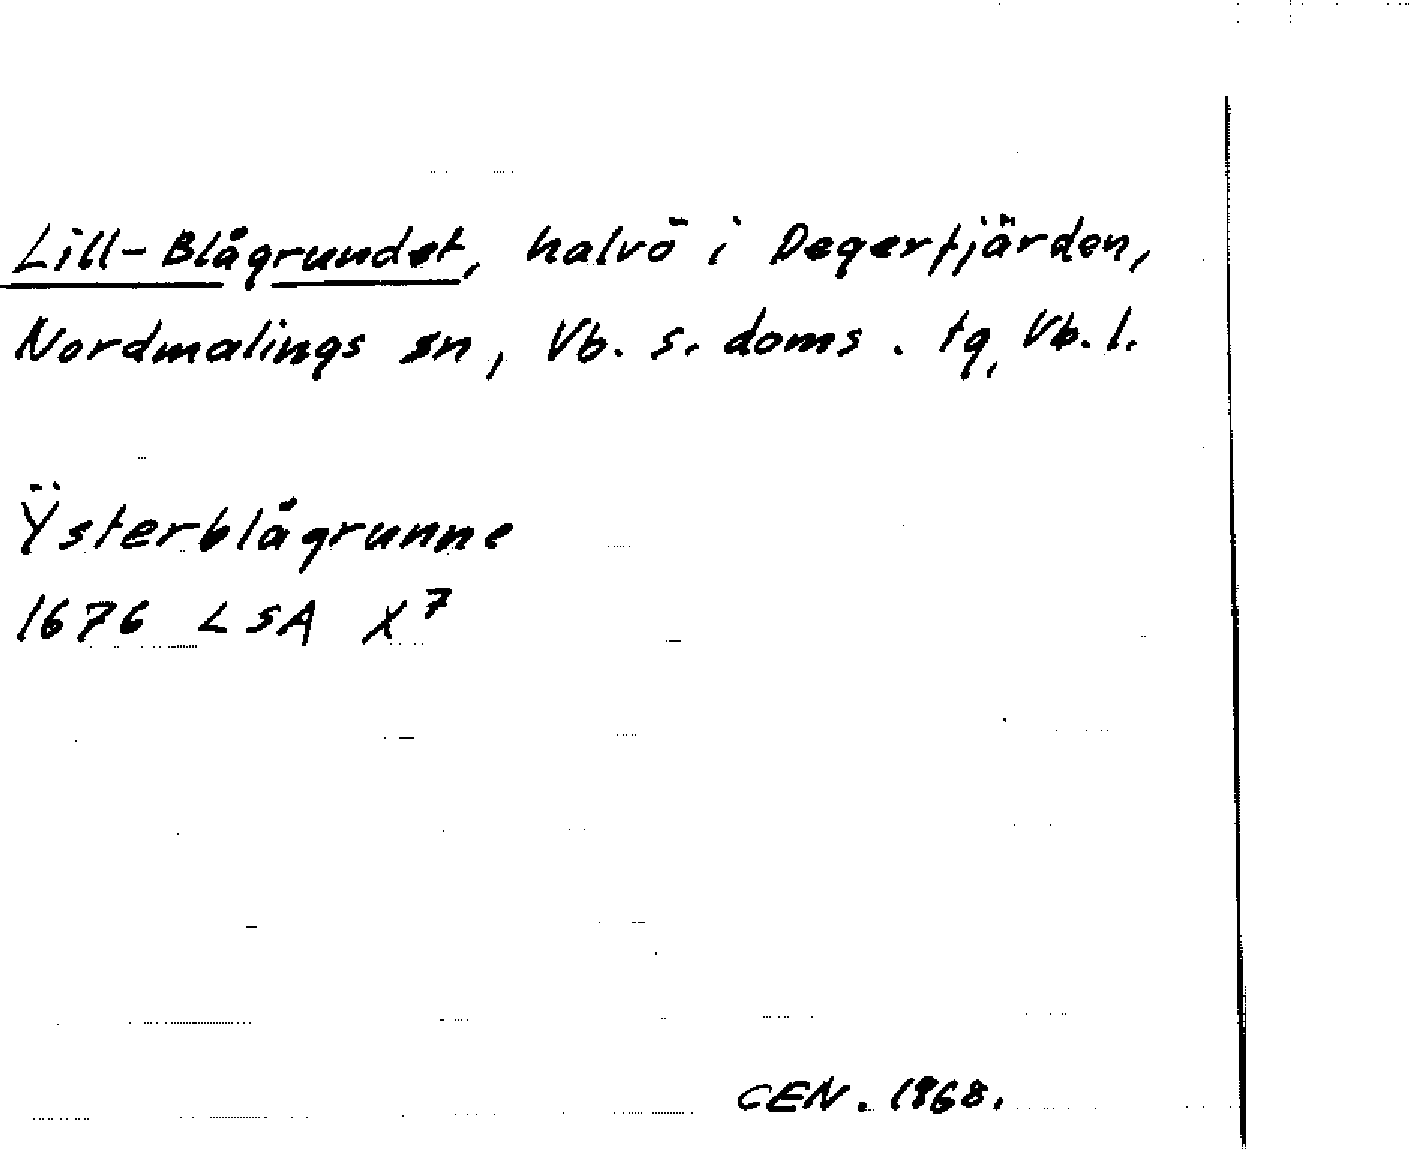 Lill-Blågrundet, halvö i Degerfjärden,
Nordmalings sn, Vb. s. doms. tg, Vb. l.
Ÿsterblågrunne
1676 LSA X⁷
CEN. 1968.